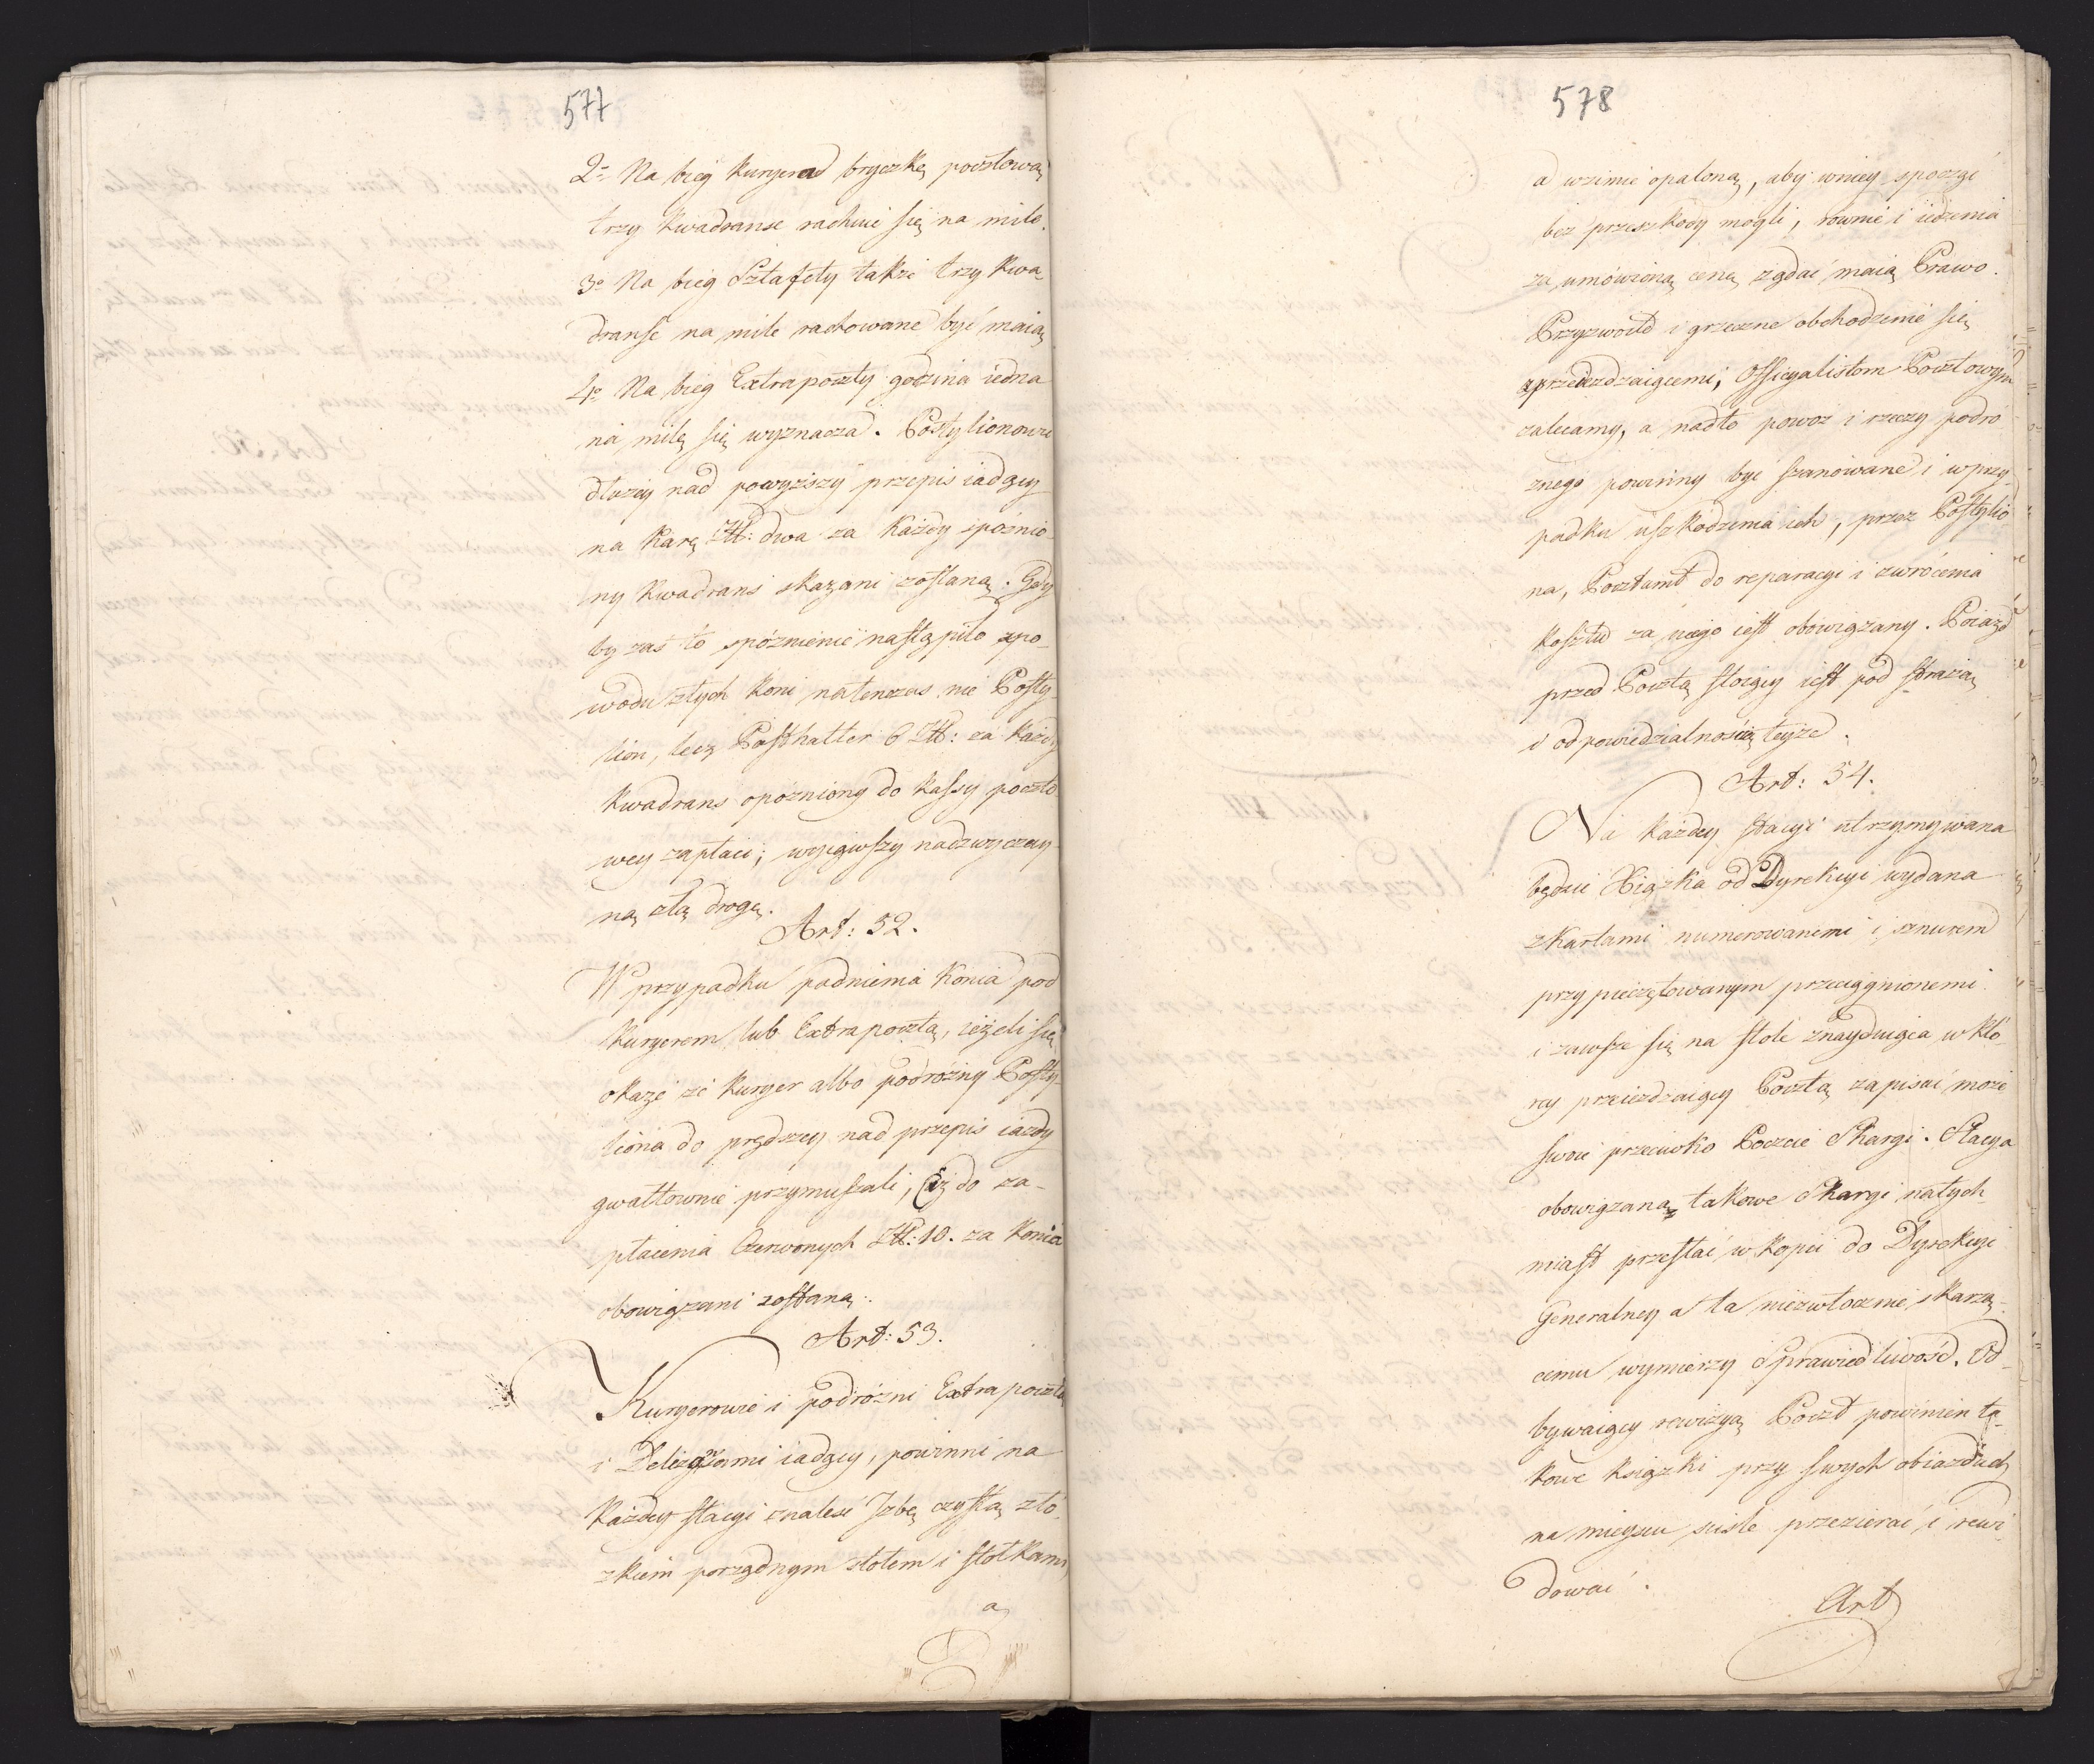 577
2o Na bieg Kuryera bryczką pocztową
trzy kwadranse rachuie się na mile.
3o Na bieg Sztafety takze trzy kwa-
dranse na mile rachowane być maią
4o Na bieg Extrapoczty godzina iedna
na milę się wyznacza. Postylionowie
dłużey nad powyższy przepis iadący
na karę Zł: dwa za każdy spóźnio-
ny kwadrans skazani zostaną. Gdy
by zaś to spóźnienie nastąpiło zpo-
wodu złych koni natenczas nie Posty-
lion, lecz Posthalter 6 Zł: za każdy
kwadrans opóźniony do kassy poczto
wey zapłaci; wyiąwszy nadzwyczay-
ną złą drogę.
Art: 52.
W przypadku padnienia konia pod
kuryerem lub Extrapocztą, ieżeli się
okaże że kuryer albo podróżny Posty-
liona do prędszey nad przepis iazdy
gwałtownie przymuszali, Ciż do za-
płacenia Czerwonych Zł: 10. za konia
obowiązani zostaną.
Art: 53.
Kuryerowie i podróżni Extrapocztą
i Deliżansami iadący, powinni na
każdey stacyi znaleść Izbę czystą z łó-
żkiem porządnym stołem i stołkami
a
578
a wzimie opaloną, aby wniey spocząć
bez przeszkody mogli, rownie i iedzenia
za umówioną cenę żądać maią Prawo.
Przyzwoite i grzeczne obchodzenie się
zprzeiezdzaiącemi, Officyalistom Pocztowym
zalecamy, a nadto powoz i rzeczy podro
znego powinny być szanowane i wprzy-
padku uszkodzenia ich, przez Postylio
na, Pocztamt do reparacyi i zwrócenia
kosztu za niego iest obowiązany. Poiazd
przed Pocztą stoiący iest pod strażą
i odpowiedzialnością teyże.
Art: 54.
Na każdey stacyi utrzymywana
będzie Xiążka od Dyrekcyi wydana
zkartami numerowanemi i sznurem
przypieczętowanym przeciągnionemi
i zawsze się na stole znayduiąca w któ-
rey przeiezdzaiący Pocztą zapisać może
swoie przeciwko Poczcie Skargi. Stacya
obowiązana takowe Skargi natych-
miast przesłać w kopii do Dyrekcyi
Generalney a ta niezwłocznie skarżą-
cemu wymierzy Sprawiedliwość. Od-
bywaiący rewizyą Poczt powinien ta-
kowe książki przy swych obiazdach
na mieyscu ściśle przezierać i rewi
dować.
Art